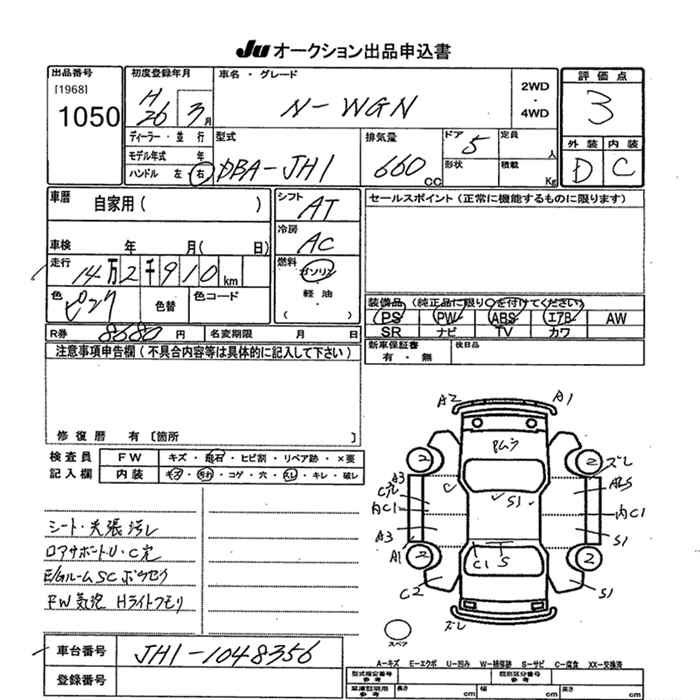 Ju オークション出品申込書
出品番号
[1968]
1050
初度登録年月
H26 3月
車名・グレード
N-WGN
2WD
・
4WD
評価点
3
外装 内装
D C
ディーラー・並行
モデル年式 年
ハンドル 左 右
型式
DBA-JH1
排気量
660 CC
ドア 5
形状
定員 人
積載 Kg
車歴
自家用( )
車検 年 月( 日)
走行
14万2千910km
色 ピンク
色替
色コード
シフト
AT
冷房
AC
燃料
ガソリン
・
軽油
・
( )
セールスポイント(正常に機能するものに限ります)
装備品(純正品に限り○を付けてください)
PS PW ABS エアB AW
SR ナビ TV カワ
新車保証書
有・無
後日品
R券 8680円
名変期限 月 日
注意事項申告欄(不具合内容等は具体的に記入して下さい)
修復歴 有〔箇所 〕
検査員
記入欄
FW キズ・飛石・ヒビ割・リペア跡・×要
内装 キズ・汚れ・コゲ・穴・スレ・キレ・破レ
シート・天張汚レ
ロアサポートU・C穴
E/GルームSCボウセイ
FW気泡 Hライトクモリ
A2 A1
PAムラ
2 2 ズレ
A3 C穴
内C1
A3
A1 2
C2
C S1
A&S
内C1
S1
2
S1
C1 S
ズレ
スペア
車台番号
JH1-1048356
登録番号
A-キズ E-エクボ U-凹み W-補修跡 S-サビ C-腐食 XX-交換済
型式指定番号
参考
類別区分番号
参考
車庫証明用
参考
長さ cm 幅 cm 高さ cm